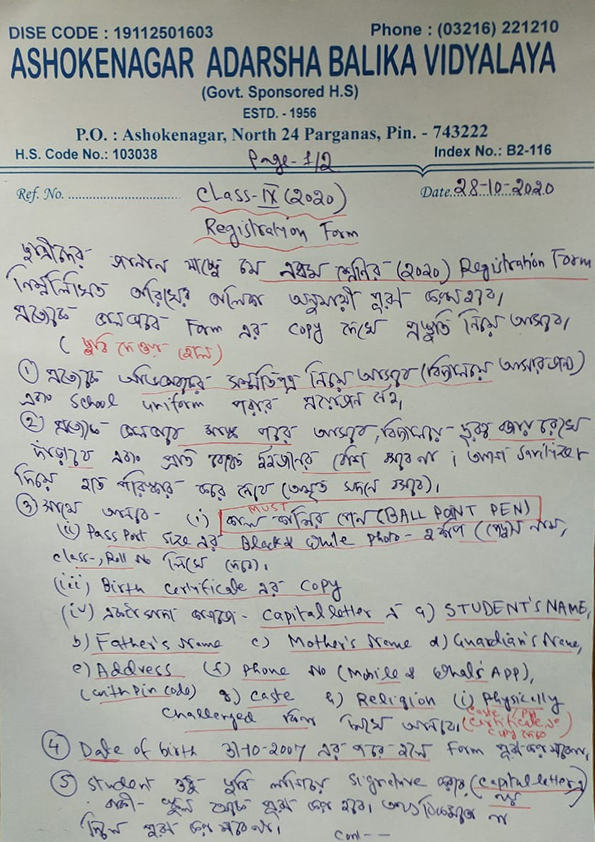 DISE CODE : 19112501603 Phone : (03216) 221210
ASHOKENAGAR ADARSHA BALIKA VIDYALAYA
(Govt. Sponsored H.S)
ESTD. - 1956
P.O. : Ashokenagar, North 24 Parganas, Pin. - 743222
H.S. Code No.: 103038 Page- 1/2 Index No.: B2-116
Ref. No. Class-IX (2020) Date 28-10-2020
Registration Form
ছাত্রীদের জানান যাচ্ছে যে নবম শ্রেনির (2020) Registration Form
নিম্নলিখিত তারিখের তালিকা অনুযায়ী পূরণ করতে হবে।
প্রত্যেকে Form এর copy দেখে প্রস্তুতি নিয়ে আসবে।
① প্রত্যেকে অভিভাবকের সম্মতিপত্র নিয়ে আসবে (বিদ্যালয়ে আসার জন্য)
এবং School uniform পরার প্রয়োজন নেই,
② প্রত্যেকে মাস্ক পরে আসবে, বিদ্যালয়ে দূরত্ব বজায় রেখে
দাঁড়াবে এবং প্রতি বেঞ্চে দুইজনের বেশি বসবে না। Sanitizer
দিয়ে হাত পরিষ্কার করে নেবে
③ সাথে আনবে- (i) MUST কালো কালির পেন (BALL POINT PEN)
(ii) Pass Port Size এর Black & White Photo- ২ কপি (পেছনে নাম,
class-, Roll No লিখে নেবে)।
(iii) Birth Certificate এর copy
(iv) capital letter এ a) STUDENT'S NAME,
b) Father's Name c) Mother's Name d) Guardian's Name,
e) Address (f) Phone No (Mobile & Whats APP),
(with Pin code) g) Caste h) Religion (i) Physically
Challenged কিনা লিখে আনবে। (Caste, PH certificate এর
④ Date of birth 31-10-2007 এর পরে হলে Form পূরণ করা যাবেনা,
⑤ Student শুধু ছবি লাগিয়ে Signature করবে (capital letter এ নয়)
বাকী স্কুল থেকে পূরণ করা হবে। না
নিয়ে পূরণ করা যাবে না।
cont--